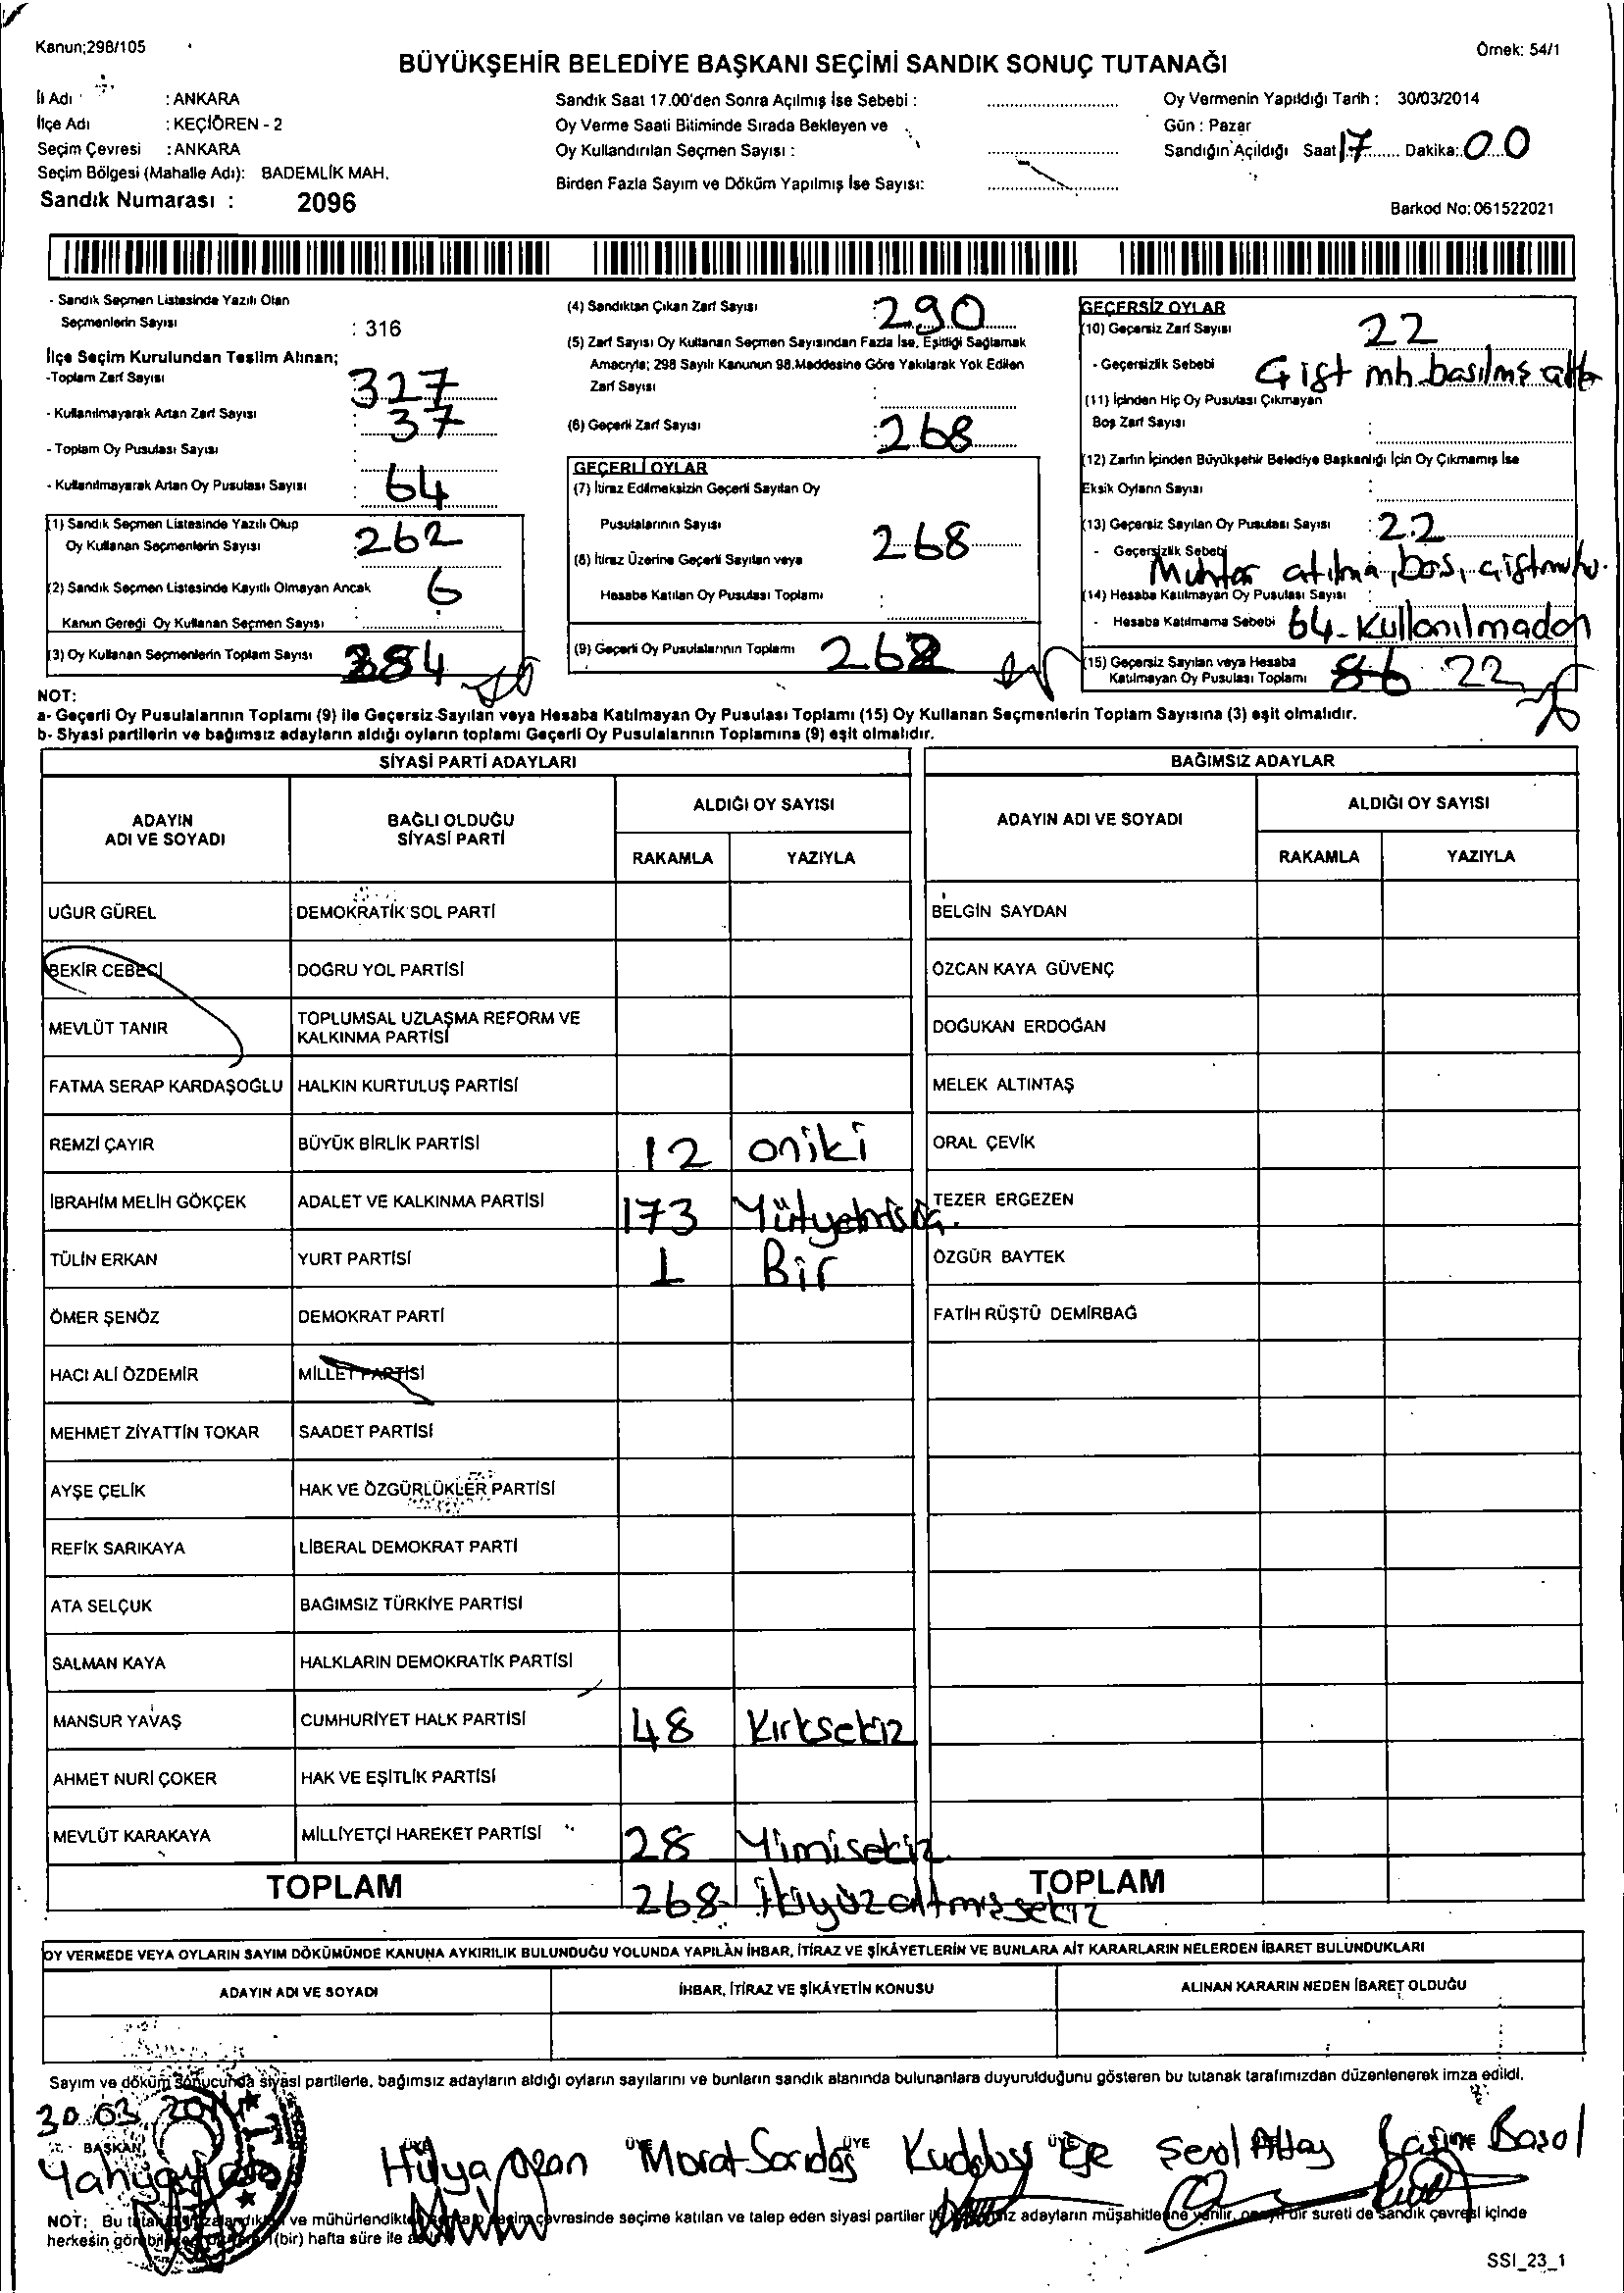 Kanun;298/105
Örnek: 54/1
BÜYÜKŞEHİR BELEDİYE BAŞKANI SEÇİMİ SANDIK SONUÇ TUTANAĞI
İl Adı : ANKARA
İlçe Adı : KEÇİÖREN - 2
Seçim Çevresi : ANKARA
Seçim Bölgesi (Mahalle Adı): BADEMLİK MAH.
Sandık Numarası : 2096
Sandık Saat 17.00'den Sonra Açılmış İse Sebebi :
Oy Verme Saati Bitiminde Sırada Bekleyen ve
Oy Kullandırılan Seçmen Sayısı :
Birden Fazla Sayım ve Döküm Yapılmış İse Sayısı:
Oy Vermenin Yapıldığı Tarih : 30/03/2014
Gün : Pazar
Sandığın Açıldığı Saat 17 Dakika: 00
Barkod No: 061522021
- Sandık Seçmen Listesinde Yazılı Olan
Seçmenlerin Sayısı : 316
İlçe Seçim Kurulundan Teslim Alınan;
-Toplam Zarf Sayısı : 327
- Kullanılmayarak Artan Zarf Sayısı : 37
- Toplam Oy Pusulası Sayısı :
- Kullanılmayarak Artan Oy Pusulası Sayısı : 64
(1) Sandık Seçmen Listesinde Yazılı Olup
Oy Kullanan Seçmenlerin Sayısı : 262
(2) Sandık Seçmen Listesinde Kayıtlı Olmayan Ancak
Kanun Gereği Oy Kullanan Seçmen Sayısı : 6
(3) Oy Kullanan Seçmenlerin Toplam Sayısı
(4) Sandıktan Çıkan Zarf Sayısı : 290
(5) Zarf Sayısı Oy Kullanan Seçmen Sayısından Fazla İse, Eşitliği Sağlamak
Amacıyla; 298 Sayılı Kanunun 98.Maddesine Göre Yakılarak Yok Edilen
Zarf Sayısı :
(6) Geçerli Zarf Sayısı : 268
GEÇERLİ OYLAR
(7) İtiraz Edilmeksizin Geçerli Sayılan Oy
Pusulalarının Sayısı : 268
(8) İtiraz Üzerine Geçerli Sayılan veya
Hesaba Katılan Oy Pusulası Toplamı :
(9) Geçerli Oy Pusulalarının Toplamı 268
GEÇERSİZ OYLAR
(10) Geçersiz Zarf Sayısı 22
- Geçersizlik Sebebi Çift mh. basılmş
(11) İçinden Hiç Oy Pusulası Çıkmayan
Boş Zarf Sayısı :
(12) Zarfın İçinden Büyükşehir Belediye Başkanlığı İçin Oy Çıkmamış İse
Eksik Oyların Sayısı :
(13) Geçersiz Sayılan Oy Pusulası Sayısı : 22
- Geçersizlik Sebebi Muhtar atılma, boş,
(14) Hesaba Katılmayan Oy Pusulası Sayısı :
- Hesaba Katılmama Sebebi 64- Kullanılmadan
(15) Geçersiz Sayılan veya Hesaba
Katılmayan Oy Pusulası Toplamı 86 22
NOT:
a- Geçerli Oy Pusulalarının Toplamı (9) ile Geçersiz Sayılan veya Hesaba Katılmayan Oy Pusulası Toplamı (15) Oy Kullanan Seçmenlerin Toplam Sayısına (3) eşit olmalıdır.
b- Siyasi partilerin ve bağımsız adayların aldığı oyların toplamı Geçerli Oy Pusulalarının Toplamına (9) eşit olmalıdır.
SİYASİ PARTİ ADAYLARI BAĞIMSIZ ADAYLAR
ADAYIN ADI VE SOYADI BAĞLI OLDUĞU SİYASİ PARTİ ALDIĞI OY SAYISI ADAYIN ADI VE SOYADI ALDIĞI OY SAYISI
RAKAMLA YAZIYLA RAKAMLA YAZIYLA
UĞUR GÜREL DEMOKRATİK SOL PARTİ BELGİN SAYDAN
BEKİR CEBECİ DOĞRU YOL PARTİSİ ÖZCAN KAYA GÜVENÇ
MEVLÜT TANIR TOPLUMSAL UZLAŞMA REFORM VE KALKINMA PARTİSİ DOĞUKAN ERDOĞAN
FATMA SERAP KARDAŞOĞLU HALKIN KURTULUŞ PARTİSİ MELEK ALTINTAŞ
REMZİ ÇAYIR BÜYÜK BİRLİK PARTİSİ 12 oniki ORAL ÇEVİK
İBRAHİM MELİH GÖKÇEK ADALET VE KALKINMA PARTİSİ 173 TEZER ERGEZEN
TÜLİN ERKAN YURT PARTİSİ 1 Bir ÖZGÜR BAYTEK
ÖMER ŞENÖZ DEMOKRAT PARTİ FATİH RÜŞTÜ DEMİRBAĞ
HACI ALİ ÖZDEMİR MİLLET PARTİSİ
MEHMET ZİYATTİN TOKAR SAADET PARTİSİ
AYŞE ÇELİK HAK VE ÖZGÜRLÜKLER PARTİSİ
REFİK SARIKAYA LİBERAL DEMOKRAT PARTİ
ATA SELÇUK BAĞIMSIZ TÜRKİYE PARTİSİ
SALMAN KAYA HALKLARIN DEMOKRATİK PARTİSİ
MANSUR YAVAŞ CUMHURİYET HALK PARTİSİ 48 Kırksekiz
AHMET NURİ ÇOKER HAK VE EŞİTLİK PARTİSİ
MEVLÜT KARAKAYA MİLLİYETÇİ HAREKET PARTİSİ 28 Yimisekiz
TOPLAM 268 İkiyüzaltmışsekiz TOPLAM
OY VERMEDE VEYA OYLARIN SAYIM DÖKÜMÜNDE KANUNA AYKIRILIK BULUNDUĞU YOLUNDA YAPILAN İHBAR, İTİRAZ VE ŞİKAYETLERİN VE BUNLARA AİT KARARLARIN NELERDEN İBARET BULUNDUKLARI
ADAYIN ADI VE SOYADI İHBAR, İTİRAZ VE ŞİKAYETİN KONUSU ALINAN KARARIN NEDEN İBARET OLDUĞU
Sayım ve döküm sonucunda siyasi partilerle, bağımsız adayların aldığı oyların sayılarını ve bunların sandık alanında bulunanlara duyurulduğunu gösteren bu tutanak tarafımızdan düzenlenerek imza edildi.
30.03.2014
BAŞKAN ÜYE ÜYE ÜYE ÜYE
Hülya Ozan Murat Sarıdağ Kuddusi Ege Şenol Altay
NOT: Bu ve mühürlendikten çevresinde seçime katılan ve talep eden siyasi partiler adayların müşahitlerine verilir, bir sureti de sandık çevresi içinde
herkesin (bir) hafta süre ile
SSI_23_1